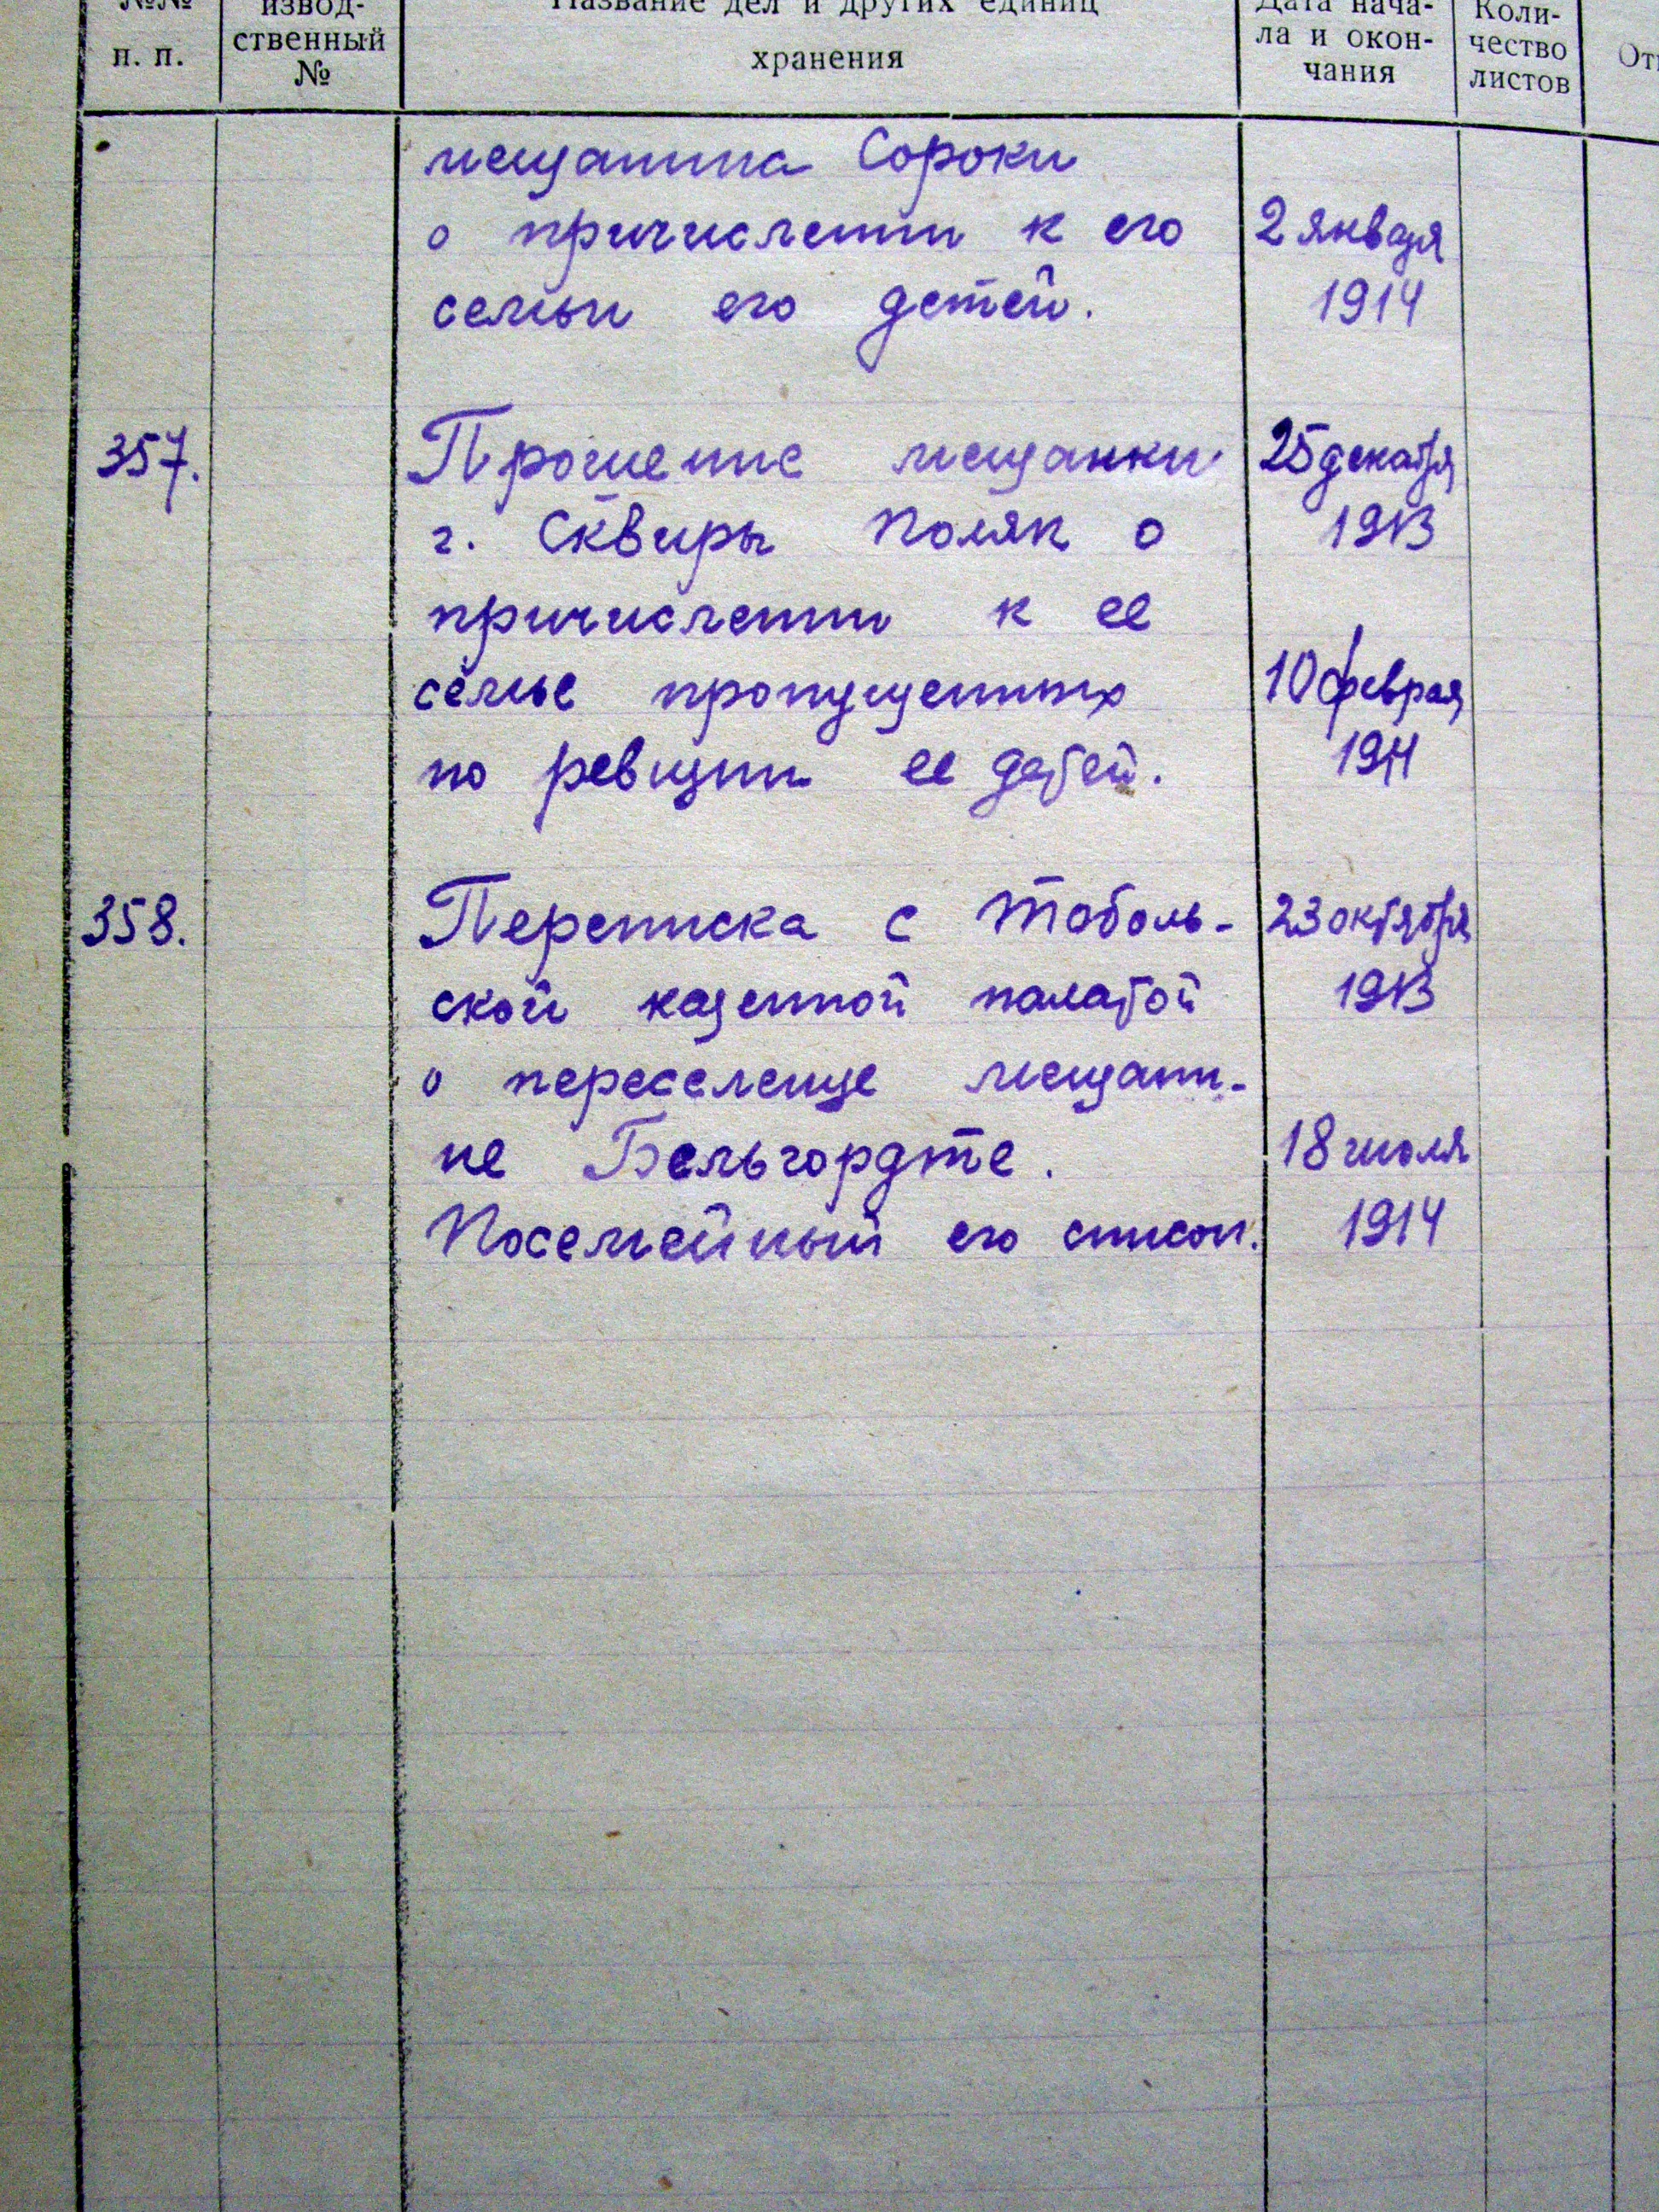 №№
н. п.
извод-
ственный
№
Название дел и других единиц
хранения
Дата нача-
ла и окон-
чания
Коли-
чество
листов
мещанина Сороки
о причислении к его
семьи его детей.
2 января
1914
357.
Прошение мещанки
г. Сквиры Поляк о
причислении к ее
семье пропущенных
по ревизии ее детей.
25 декабря
1913
10 февраля
1914
358.
Переписка с Тоболь-
ской казенной палатой
о переселенце мещани-
не Бельгордте.
Посемейный его список.
23 октября
1913
18 июля
1914